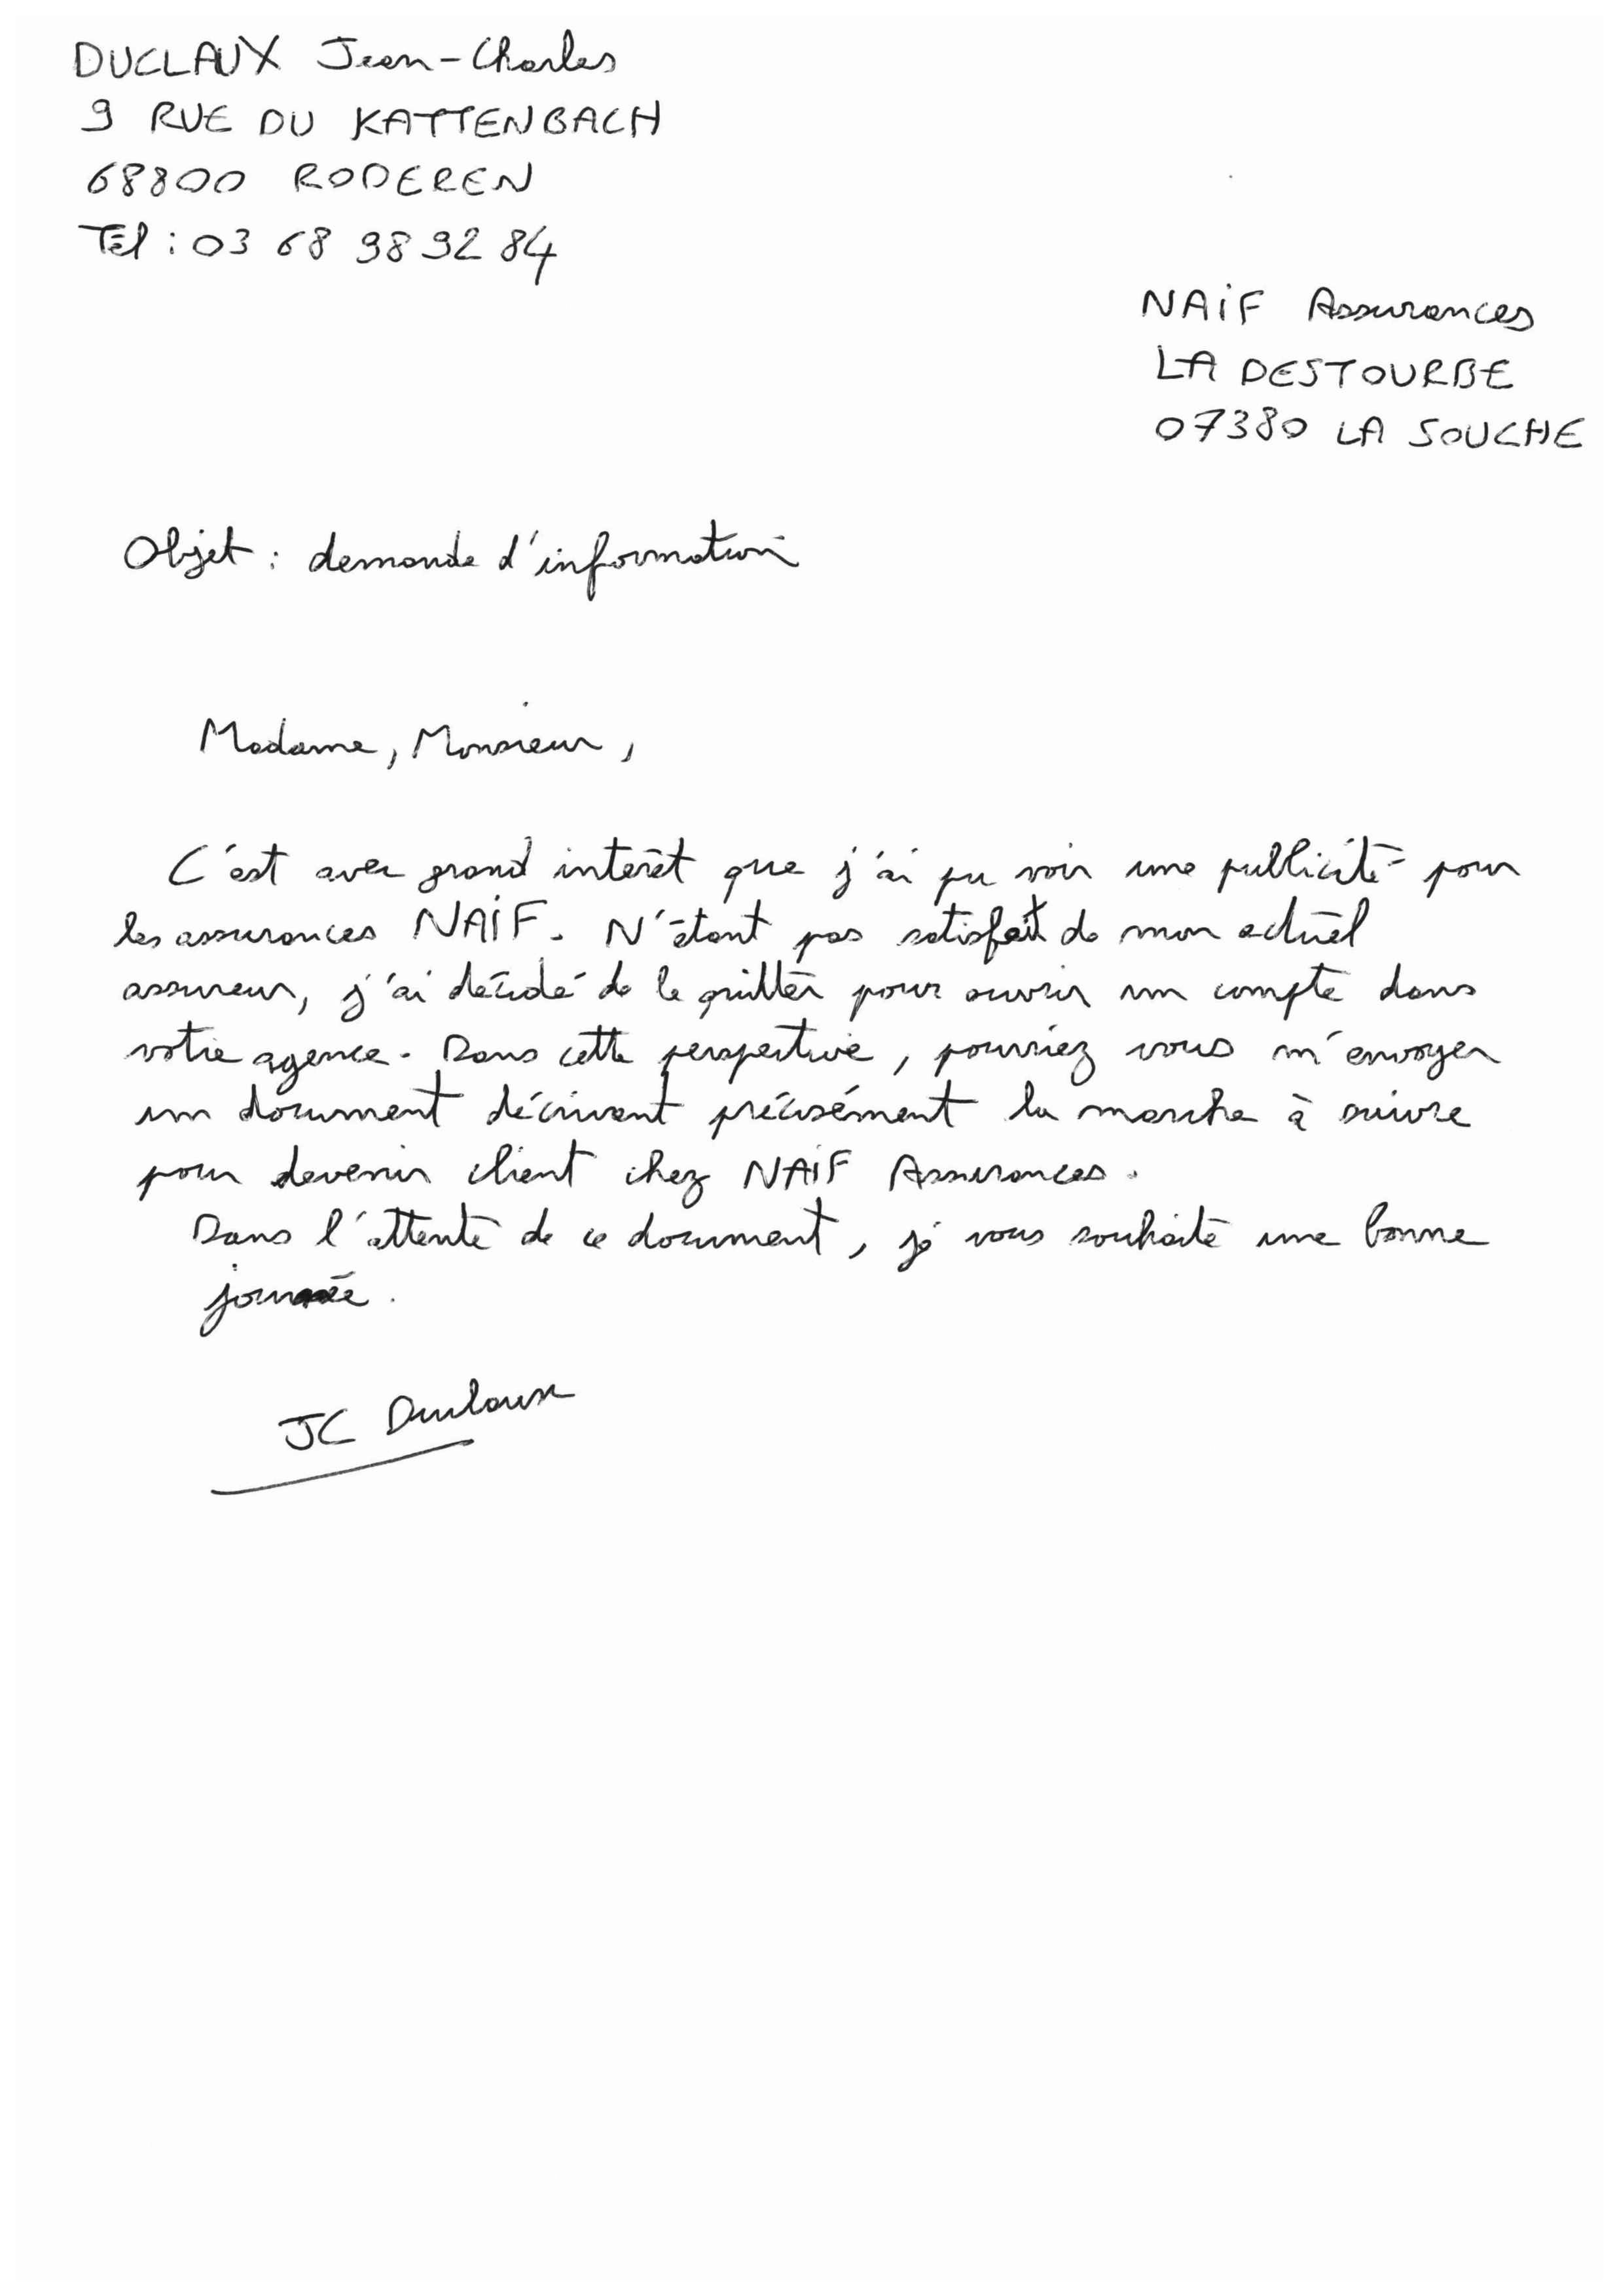 DUCLAUX Jean-Charles
9 RUE DU KATTENBACH
68800 RODEREN
Tél : 03 68 98 92 84
NAiF Assurances
LA DESTOURBE
07380 LA SOUCHE
Objet : demande d'information
Madame, Monsieur,
C'est avec grand intérêt que j'ai pu voir une publicité pour
les assurances NAiF. N'étant pas satisfait de mon actuel
assureur, j'ai décidé de le quitter pour ouvrir un compte dans
votre agence. Dans cette perspective, pourriez vous m'envoyer
un document décrivant précisément la marche à suivre
pour devenir client chez NAiF Assurances.
Dans l'attente de ce document, je vous souhaite une bonne
journée.
JC Duclaux